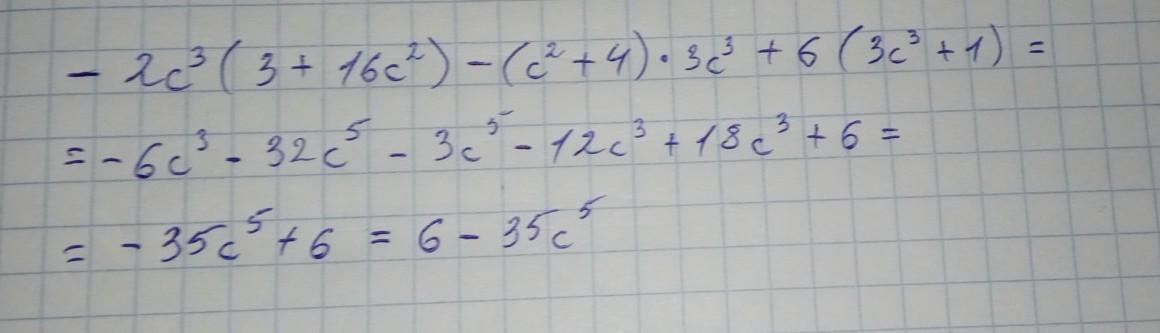 - 2c³(3 + 16c²) - (c² + 4) · 3c³ + 6(3c³ + 1) =
= - 6c³ - 32c⁵ - 3c⁵ - 12c³ + 18c³ + 6 =
= - 35c⁵ + 6 = 6 - 35c⁵